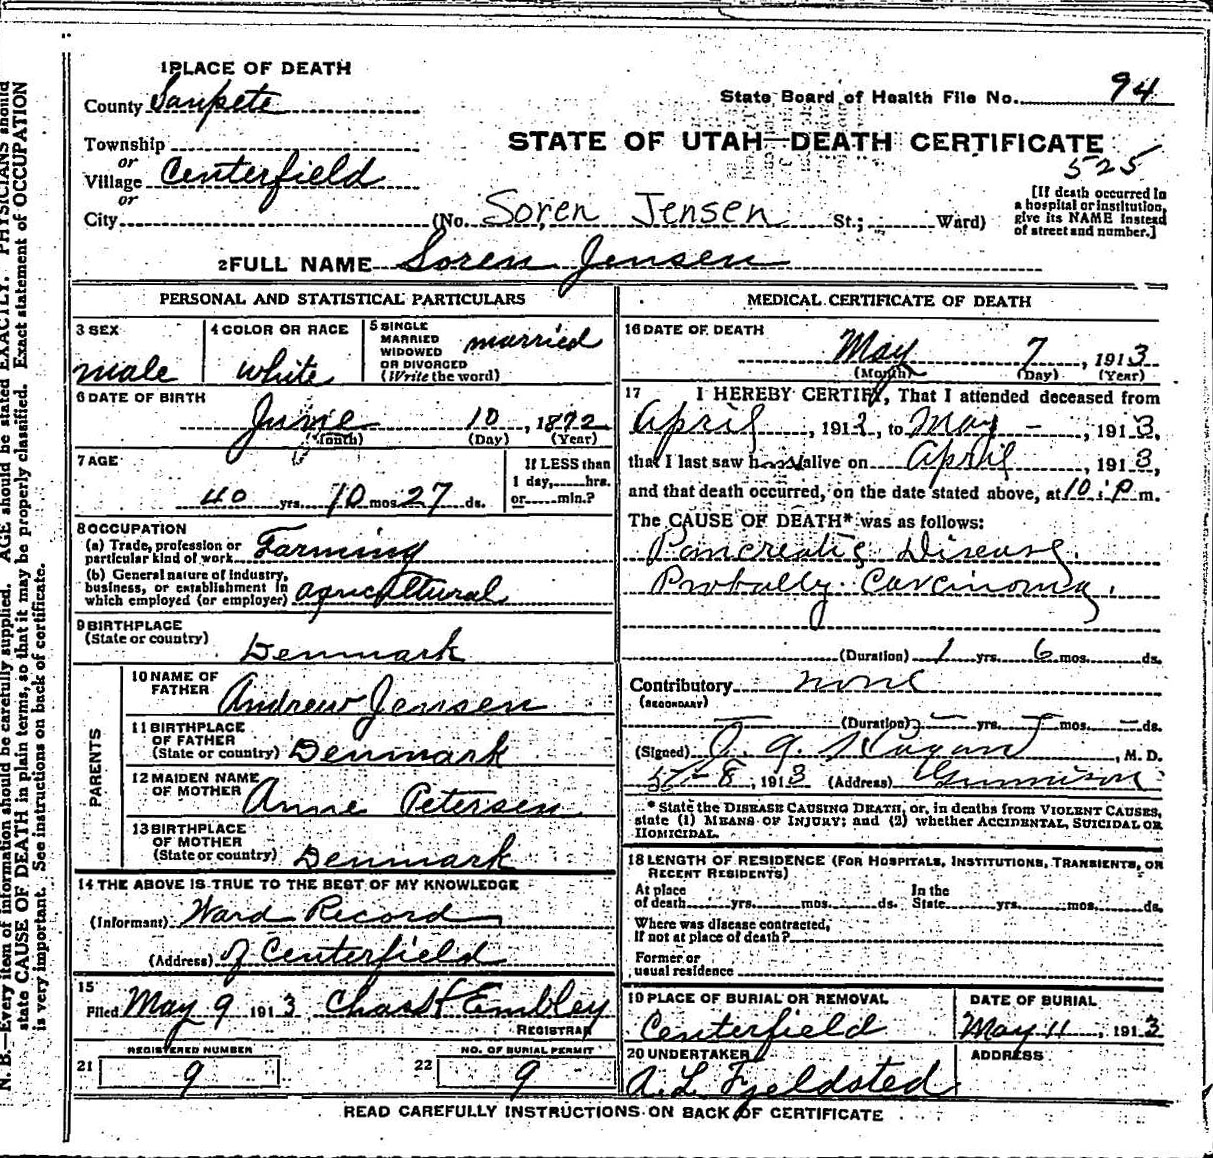 1 PLACE OF DEATH
County Sanpete
State Board of Health File No. 94
Township
STATE OF UTAH—DEATH CERTIFICATE
or
525
Village Centerfield
or
City (No. Soren Jensen St.; Ward)
[If death occurred in
a hospital or institution,
give its NAME instead
of street and number.]
2 FULL NAME Soren Jensen
PERSONAL AND STATISTICAL PARTICULARS
3 SEX
male
4 COLOR OR RACE
white
5 SINGLE
MARRIED
WIDOWED
OR DIVORCED
(Write the word)
married
6 DATE OF BIRTH
June 10, 1872
(Month) (Day) (Year)
7 AGE
40 yrs. 10 mos. 27 ds.
If LESS than
1 day, hrs.
or min.?
8 OCCUPATION
(a) Trade, profession or
particular kind of work Farming
(b) General nature of industry,
business, or establishment in
which employed (or employer) agricultural
9 BIRTHPLACE
(State or country)
Denmark
PARENTS
10 NAME OF
FATHER Andrew Jensen
11 BIRTHPLACE
OF FATHER
(State or country) Denmark
12 MAIDEN NAME
OF MOTHER Anne Petersen
13 BIRTHPLACE
OF MOTHER
(State or country) Denmark
14 THE ABOVE IS TRUE TO THE BEST OF MY KNOWLEDGE
(Informant) Ward Record
(Address) of Centerfield
15
Filed May 9 1913 Chas H Embley
REGISTRAR
REGISTERED NUMBER
21 9
NO. OF BURIAL PERMIT
22 9
MEDICAL CERTIFICATE OF DEATH
16 DATE OF DEATH
May 7, 1913
(Month) (Day) (Year)
17 I HEREBY CERTIFY, That I attended deceased from
April, 1912, to May -, 1913,
that I last saw h alive on April, 1913,
and that death occurred, on the date stated above, at 10 : P m.
The CAUSE OF DEATH* was as follows:
Pancreatic Disease.
Probally Carcinoma.
(Duration) 1 yrs. 6 mos. ds.
Contributory none
(SECONDARY)
(Duration) — yrs. — mos. — ds.
(Signed) M. D.
5-8, 1913 (Address) Gunnison
* State the DISEASE CAUSING DEATH, or, in deaths from VIOLENT CAUSES,
state (1) MEANS OF INJURY; and (2) whether ACCIDENTAL, SUICIDAL OR
HOMICIDAL.
18 LENGTH OF RESIDENCE (FOR HOSPITALS, INSTITUTIONS, TRANSIENTS, OR
RECENT RESIDENTS)
At place In the
of death yrs. mos. ds. State yrs. mos. ds.
Where was disease contracted,
If not at place of death?
Former or
usual residence
19 PLACE OF BURIAL OR REMOVAL
Centerfield
DATE OF BURIAL
May 11, 1913
20 UNDERTAKER
A. L. Fjeldsted
ADDRESS
READ CAREFULLY INSTRUCTIONS ON BACK OF CERTIFICATE
N. B.—Every item of information should be carefully supplied. AGE should be stated EXACTLY. PHYSICIANS should
state CAUSE OF DEATH in plain terms, so that it may be properly classified. Exact statement of OCCUPATION
is very important. See instructions on back of certificate.